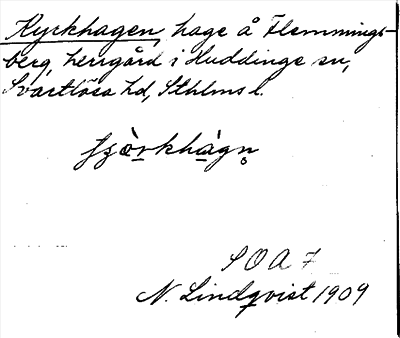 Kyrkhagen, hage å Flemmings-
berg, herrgård i Huddinge sn,
Svartlösa hd, Sthlms l.
S O A 7
N. Lindqvist 1909